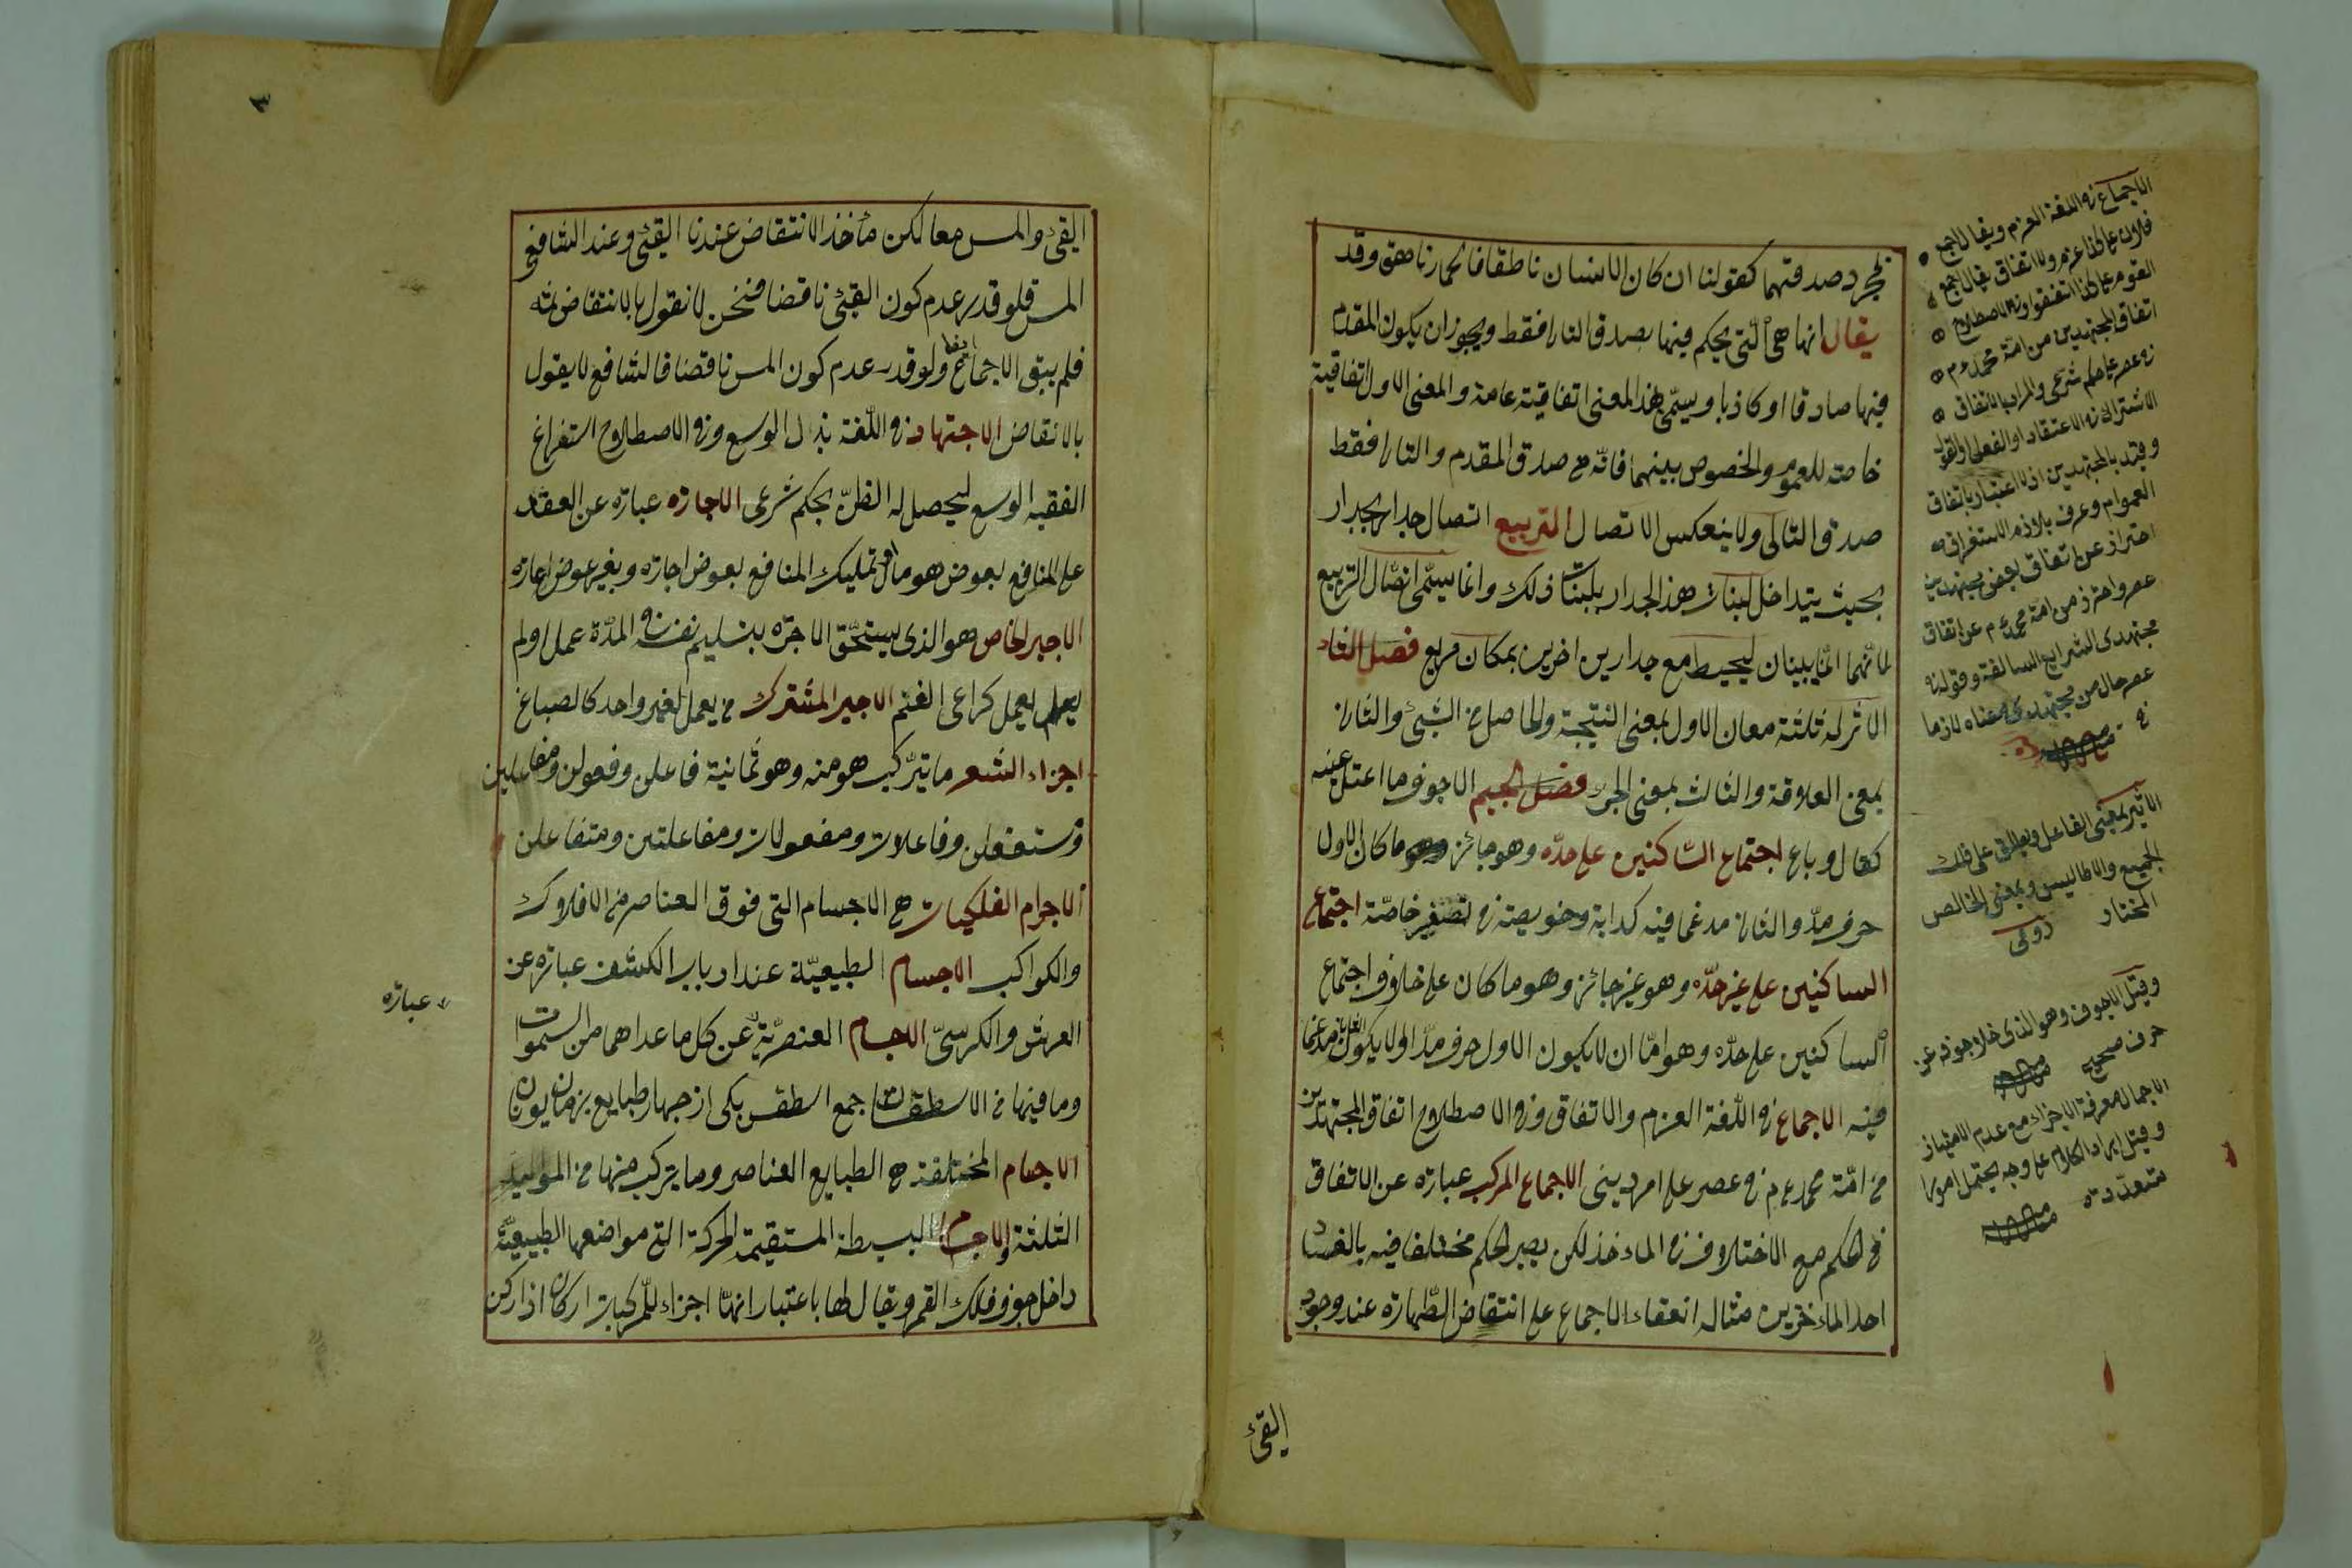 بمجرد صدقهما كقولنا ان كان الانسان ناطقا فالحمار ناهق وقد
يقال انها هى التى يحكم فيها بصدق التالى فقط ويجوز ان يكون المقدم
فيها صادقا او كاذبا ويسمى بهذا المعنى اتفاقية عامة والمعنى الاول اتفاقية
خاصة للعموم والخصوص بينهما فانه متى صدق المقدم والتالى فقط
صدق التالى ولا ينعكس الاتصال التربيع اتصال جدار بجدار
بحيث يتداخل لبنات هذا الجدار بلبنات ذلك وانما يسمى اتصال التربيع
لانهما انما يبنيان ليحيط مع جدارين اخرين بمكان مربع فصل الثاء
الاثر له ثلثة معان الاول بمعنى النتيجة والحاصل من الشىء والثانى
بمعنى العلامة والثالث بمعنى الجزء فصل الجيم الاجوف ما اعتل عينه
كقال وباع اجتماع الساكنين على حده وهو جائز وهو ما كان الاول
حرف مد والثانى مدغما فيه كدابة وخويصة فى تصغير خاصة اجتماع
الساكنين على غير حده وهو غير جائز وهو ما كان على خلاف اجتماع
الساكنين على حده وهو اما ان لا يكون الاول حرف مد او لا يكون الثانى مدغما
فيه الاجماع فى اللغة العزم والاتفاق وفى الاصطلاح اتفاق المجتهدين
من امة محمد عم فى عصر على امر دينى الاجماع المركب عبارة عن الاتفاق
فى الحكم مع الاختلاف فى الماءخذ لكن يصير الحكم مختلفا فيه بالفساد
احد الماءخذين مثاله انعقاد الاجماع على انتقاض الطهارة عند وجود
القئ
الاجماع فى اللغة العزم ويقال اجمع
فلان على كذا عزم والاتفاق يقال اجمع
القوم على كذا اتفقوا وفى الاصطلاح
اتفاق المجتهدين من امة محمد عم
فى عصر على حكم شرعى والمراد بالاتفاق
الاشتراك فى الاعتقاد او الفعل او القول
وقيد بالمجتهدين اذ لا اعتبار باتفاق
العوام وعرف بلام الاستغراق
احتراز عن اتفاق بعض مجتهدين
عصر واحترز من امة محمد عم عن اتفاق
مجتهدى الشرايع السالفة وقوله فى
عصر حال من مجتهدى معناه لازما
الاثير بمعنى الفاعل ويطلق على فلك
الجميع والاطاليس وبمعنى الخالص
المختار
وقيل الاجوف وهو الذى خلا جوفه عن
حرف صحيح
الاجمال معرفة الاجزاء مع عدم الامتياز
وقيل ايراد الكلام على وجه يحتمل امورا
متعددة
٣
القئ والمس معا لكن مأخذ الانتقاض عندنا القئ وعند الشافعى
المس فلو قدر عدم كون القئ ناقضا فنحن لا نقول بالانتقاض ثمه
فلم يبق الاجماع ولو قدر عدم كون المس ناقضا فالشافعى لا يقول
ايضا
بالانتقاض الاجتهاد فى اللغة بذل الوسع وفى الاصطلاح استفراغ
الفقيه الوسع ليحصل له الظن بحكم شرعى الاجارة عبارة عن العقد
على المنافع بعوض هو مال تمليك المنافع بعوض اجارة وبغير عوض اعارة
الاجير الخاص هو الذى يستحق الاجرة بتسليم نفسه فى المدة عمل او لم
يعمل كراعى الغنم الاجير المشترك من يعمل لغير واحد كالصباغ
اجزاء الشعر ما يتركب هو منه وهو ثمانية فاعلن وفعولن ومفاعيلن
ومستفعلن وفاعلات ومفعولات ومفاعلتن ومتفاعلن
الاجرام الفلكيات هى الاجسام التى فوق العناصر من الافلاك
والكواكب الاجسام الطبيعية عند ارباب الكشف عبارة عن
العرش والكرسى الاجسام العنصرية عن كل ما عداهما من السموات
عبارة
وما فيها من الاسطقسات جمع اسطقس يكى از چهار طبايع بزبان يونان
الاجسام المختلفة هى الطبايع العناصر وما يتركب منها من المواليد
الثلثة والاجسام البسيطة المستقيمة الحركة التى مواضعها الطبيعية
داخل جوف فلك القمر ويقال لها باعتبار انها اجزاء للمركبات اركان اذ اركن